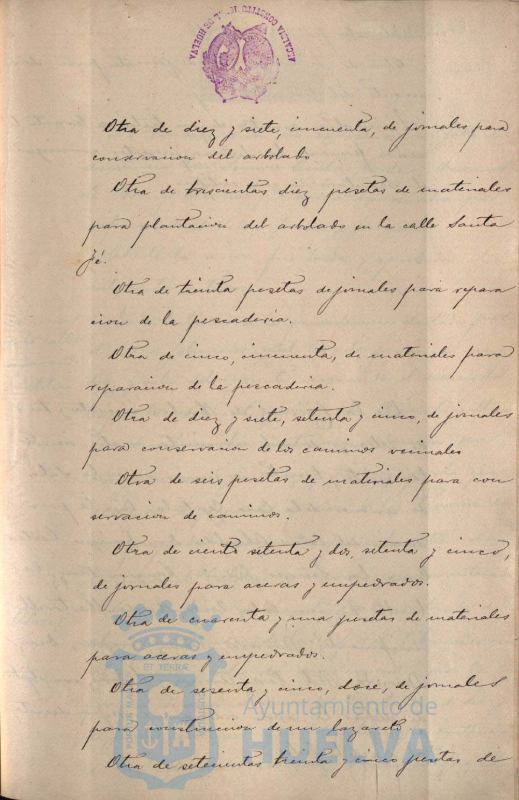 ALCALDIA CONSTITUCIONAL DE HUELVA
Otra de diez y siete, cincuenta, de jornales para
conservacion del arbolado
Otra de trescientas diez pesetas de materiales
para plantacion del arbolado en la calle Santa
Fé.
Otra de treinta pesetas de jornales para repara
cion de la pescaderia.
Otra de cinco, cincuenta, de materiales para
reparacion de la pescaderia.
Otra de diez y siete, setenta y cinco, de jornales
para conservacion de los caminos vecinales
Otra de seis pesetas de materiales para con
servacion de caminos.
Otra de ciento setenta y dos, setenta y cinco,
de jornales para aceras y empedrados.
Otra de cuarenta y una pesetas de materiales
para aceras y empedrados.
Otra de sesenta y cinco, doce, de jornales
para construccion de un lazareto
Otra de setecientas treinta y cinco pesetas de
ET TERRÆ
Ayuntamiento de
HUELVA